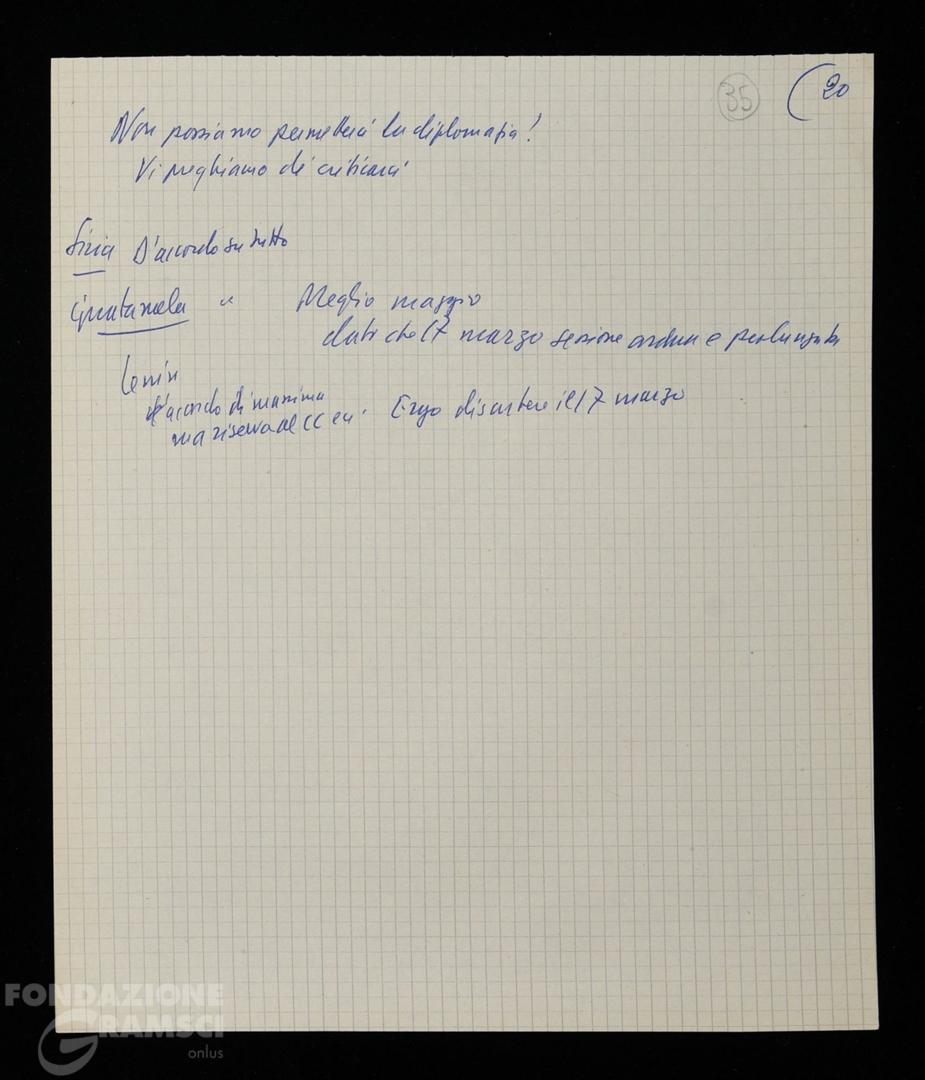 35 (20
Non possiamo permetterci la diplomazia!
Vi preghiamo di criticarci
Siria D'accordo su tutto
Guatamela " Meglio maggio
dato che 17 marzo sessione ardua e prolungata
Lenin
d'accordo di massima
ma riserva del CC Ergo discutere il 17 marzo
FONDAZIONE
GRAMSCI
onlus